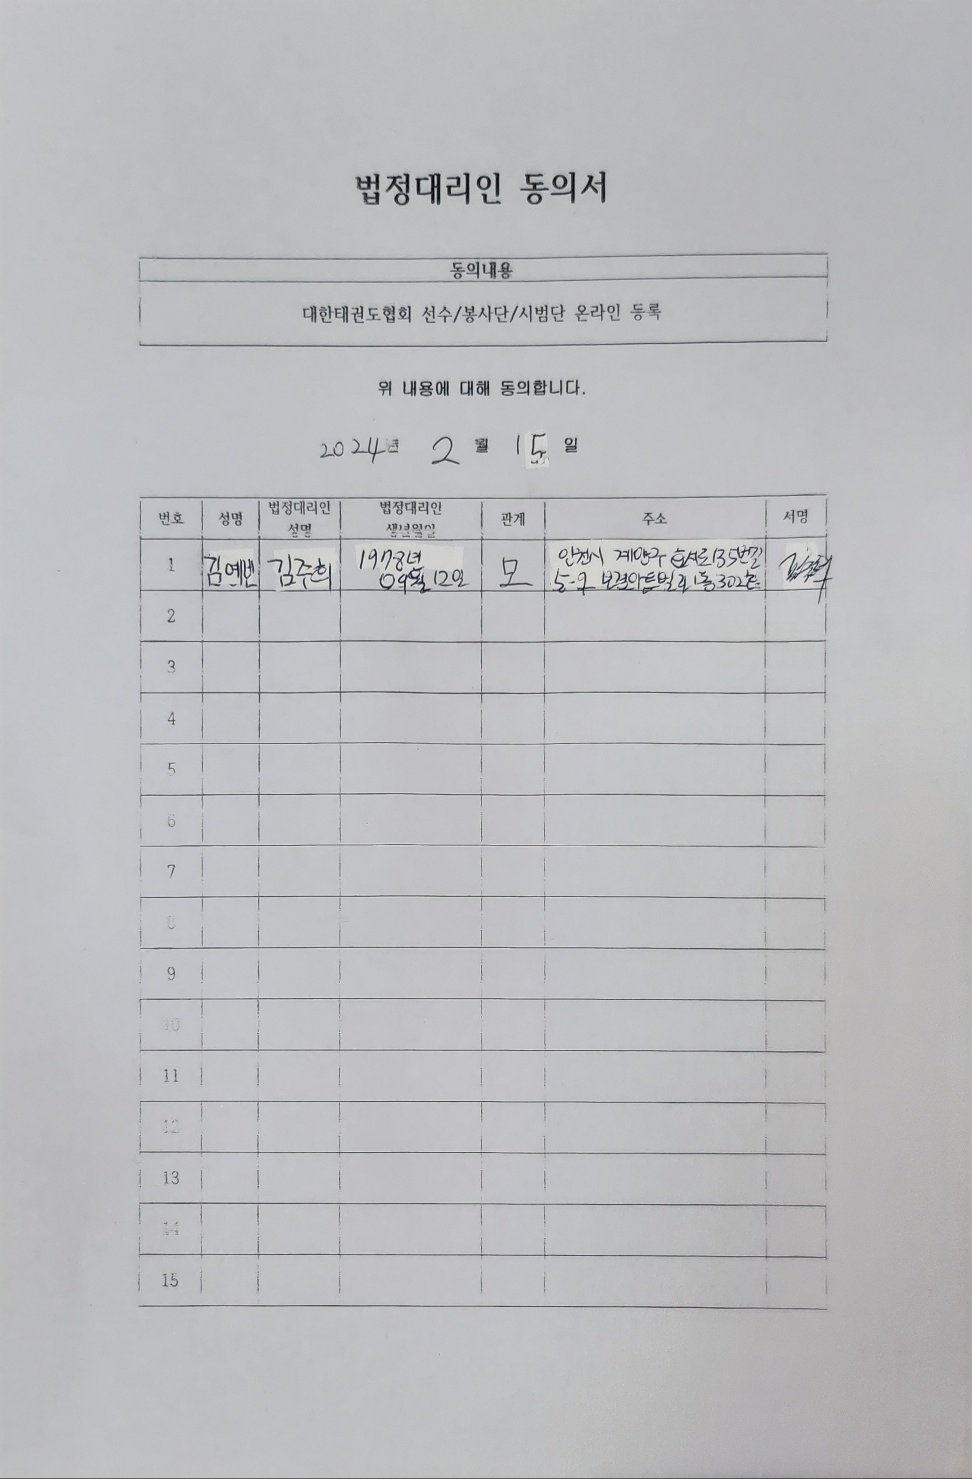 법정대리인 동의서
동의내용
대한태권도협회 선수/봉사단/시범단 온라인 등록
위 내용에 대해 동의합니다.
2024년 2월 15일
번호 성명 법정대리인 성명 법정대리인 생년월일 관계 주소 서명
1 김예빈 김주희 1978년 09월 12일 모 인천시 계양구 효서로135번길
5-9 보경아트빌라 1동 302호
2
3
4
5
6
7
8
9
10
11
12
13
14
15